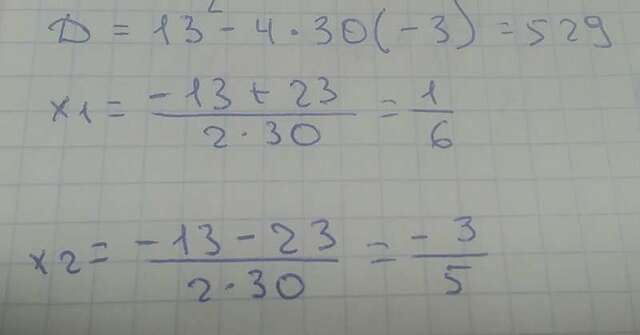 D = 13² - 4 · 30(-3) = 529
x1 = (-13 + 23)/(2 · 30) = 1/6
x2 = (-13 - 23)/(2 · 30) = -3/5